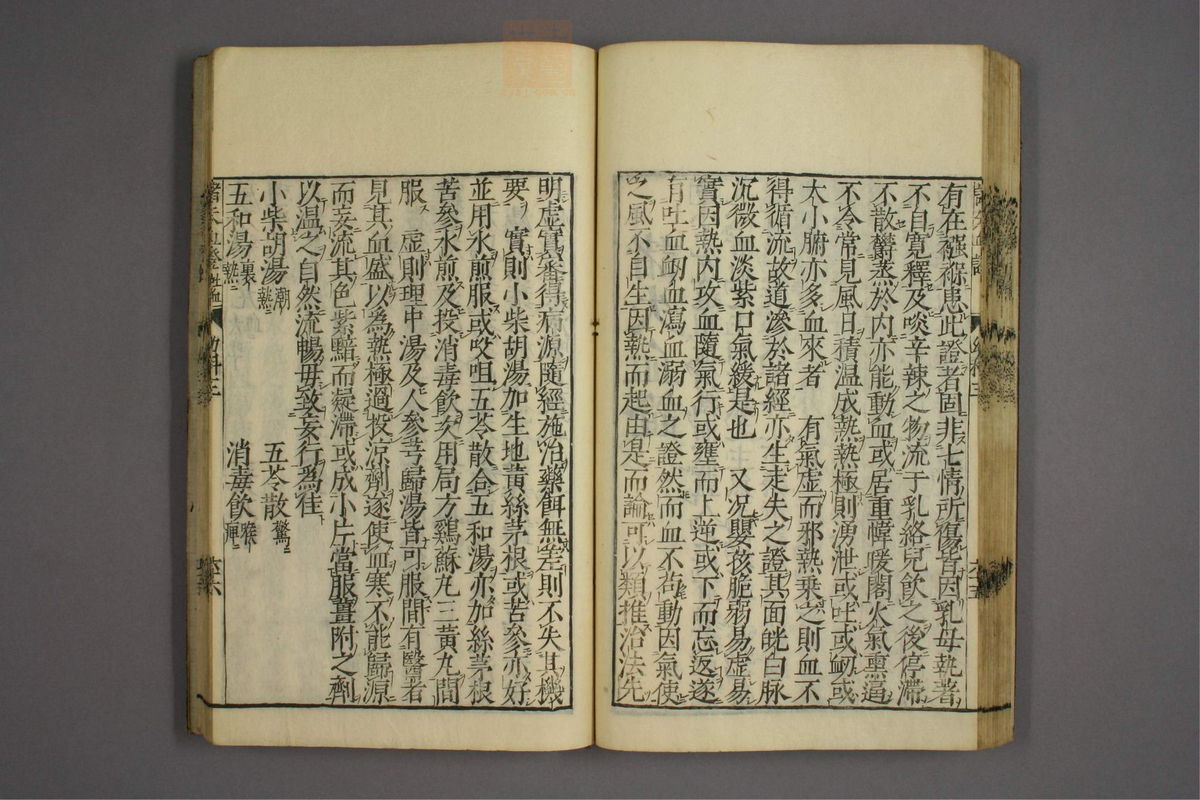 有在襁褓患此證者固非七情所傷皆因乳母執著
不自寬釋及啖辛辣之物流于乳絡兒飲之後停滯
不散欝蒸於内亦能動血或居重幃暖閣火氣熏逼
不令常見風日積温成熱熱極則湧泄或吐或衂或
大小腑亦多血來者　有氣虚而邪熱乗之則血不
得循流故道滲於諸經亦生走失之證其面㿠白脉
沉微血淡紫口氣緩是也　又況嬰孩脆弱易虚易
實因熱内攻血隨氣行或壅而上逆或下而忘返遂
有吐血衂血瀉血溺血之證然而血不苟動因氣使
之風不自生因熱而起由是而論可以類推治法先
明虚實審得病源隨經施治藥餌無差則不失其機
要　實則小柴胡湯加生地黄絲茅根或苦參亦好
並用水煎服或㕮咀五苓散合五和湯亦加絲茅根
苦參水煎及投消毒飲次用局方鷄蘇丸三黄丸間
服　虚則理中湯及人參芎歸湯皆可服間有醫者
見其血盛以爲熱極過投涼劑遂使血寒不能歸源
而妄流其色紫黯而凝滯或成小片當服薑附之劑
以温之自然流暢毋致妄行爲佳
小柴胡湯潮熱　五苓散驚
五和湯裏熱　消毒飲喉痺
幼科三